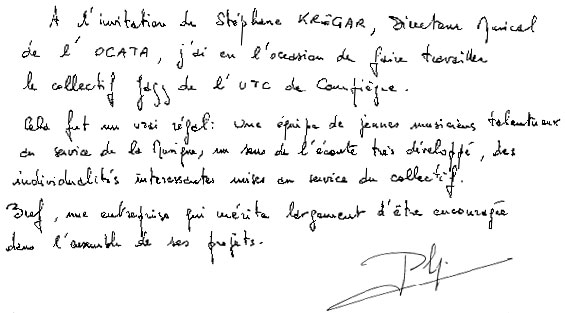 A l'invitation de Stéphane KREGAR, Directeur Musical
de l'OCATA, j'ai eu l'occasion de faire travailler
le collectif Jazz de l'UTC de Compiègne.
Cela fut un vrai régal : une équipe de jeunes musiciens talentueux
au service de la Musique, un sens de l'écoute très développé, des
individualités intéressantes mises au service du collectif.
Bref, une entreprise qui mérite largement d'être encouragée
dans l'ensemble de ses projets.